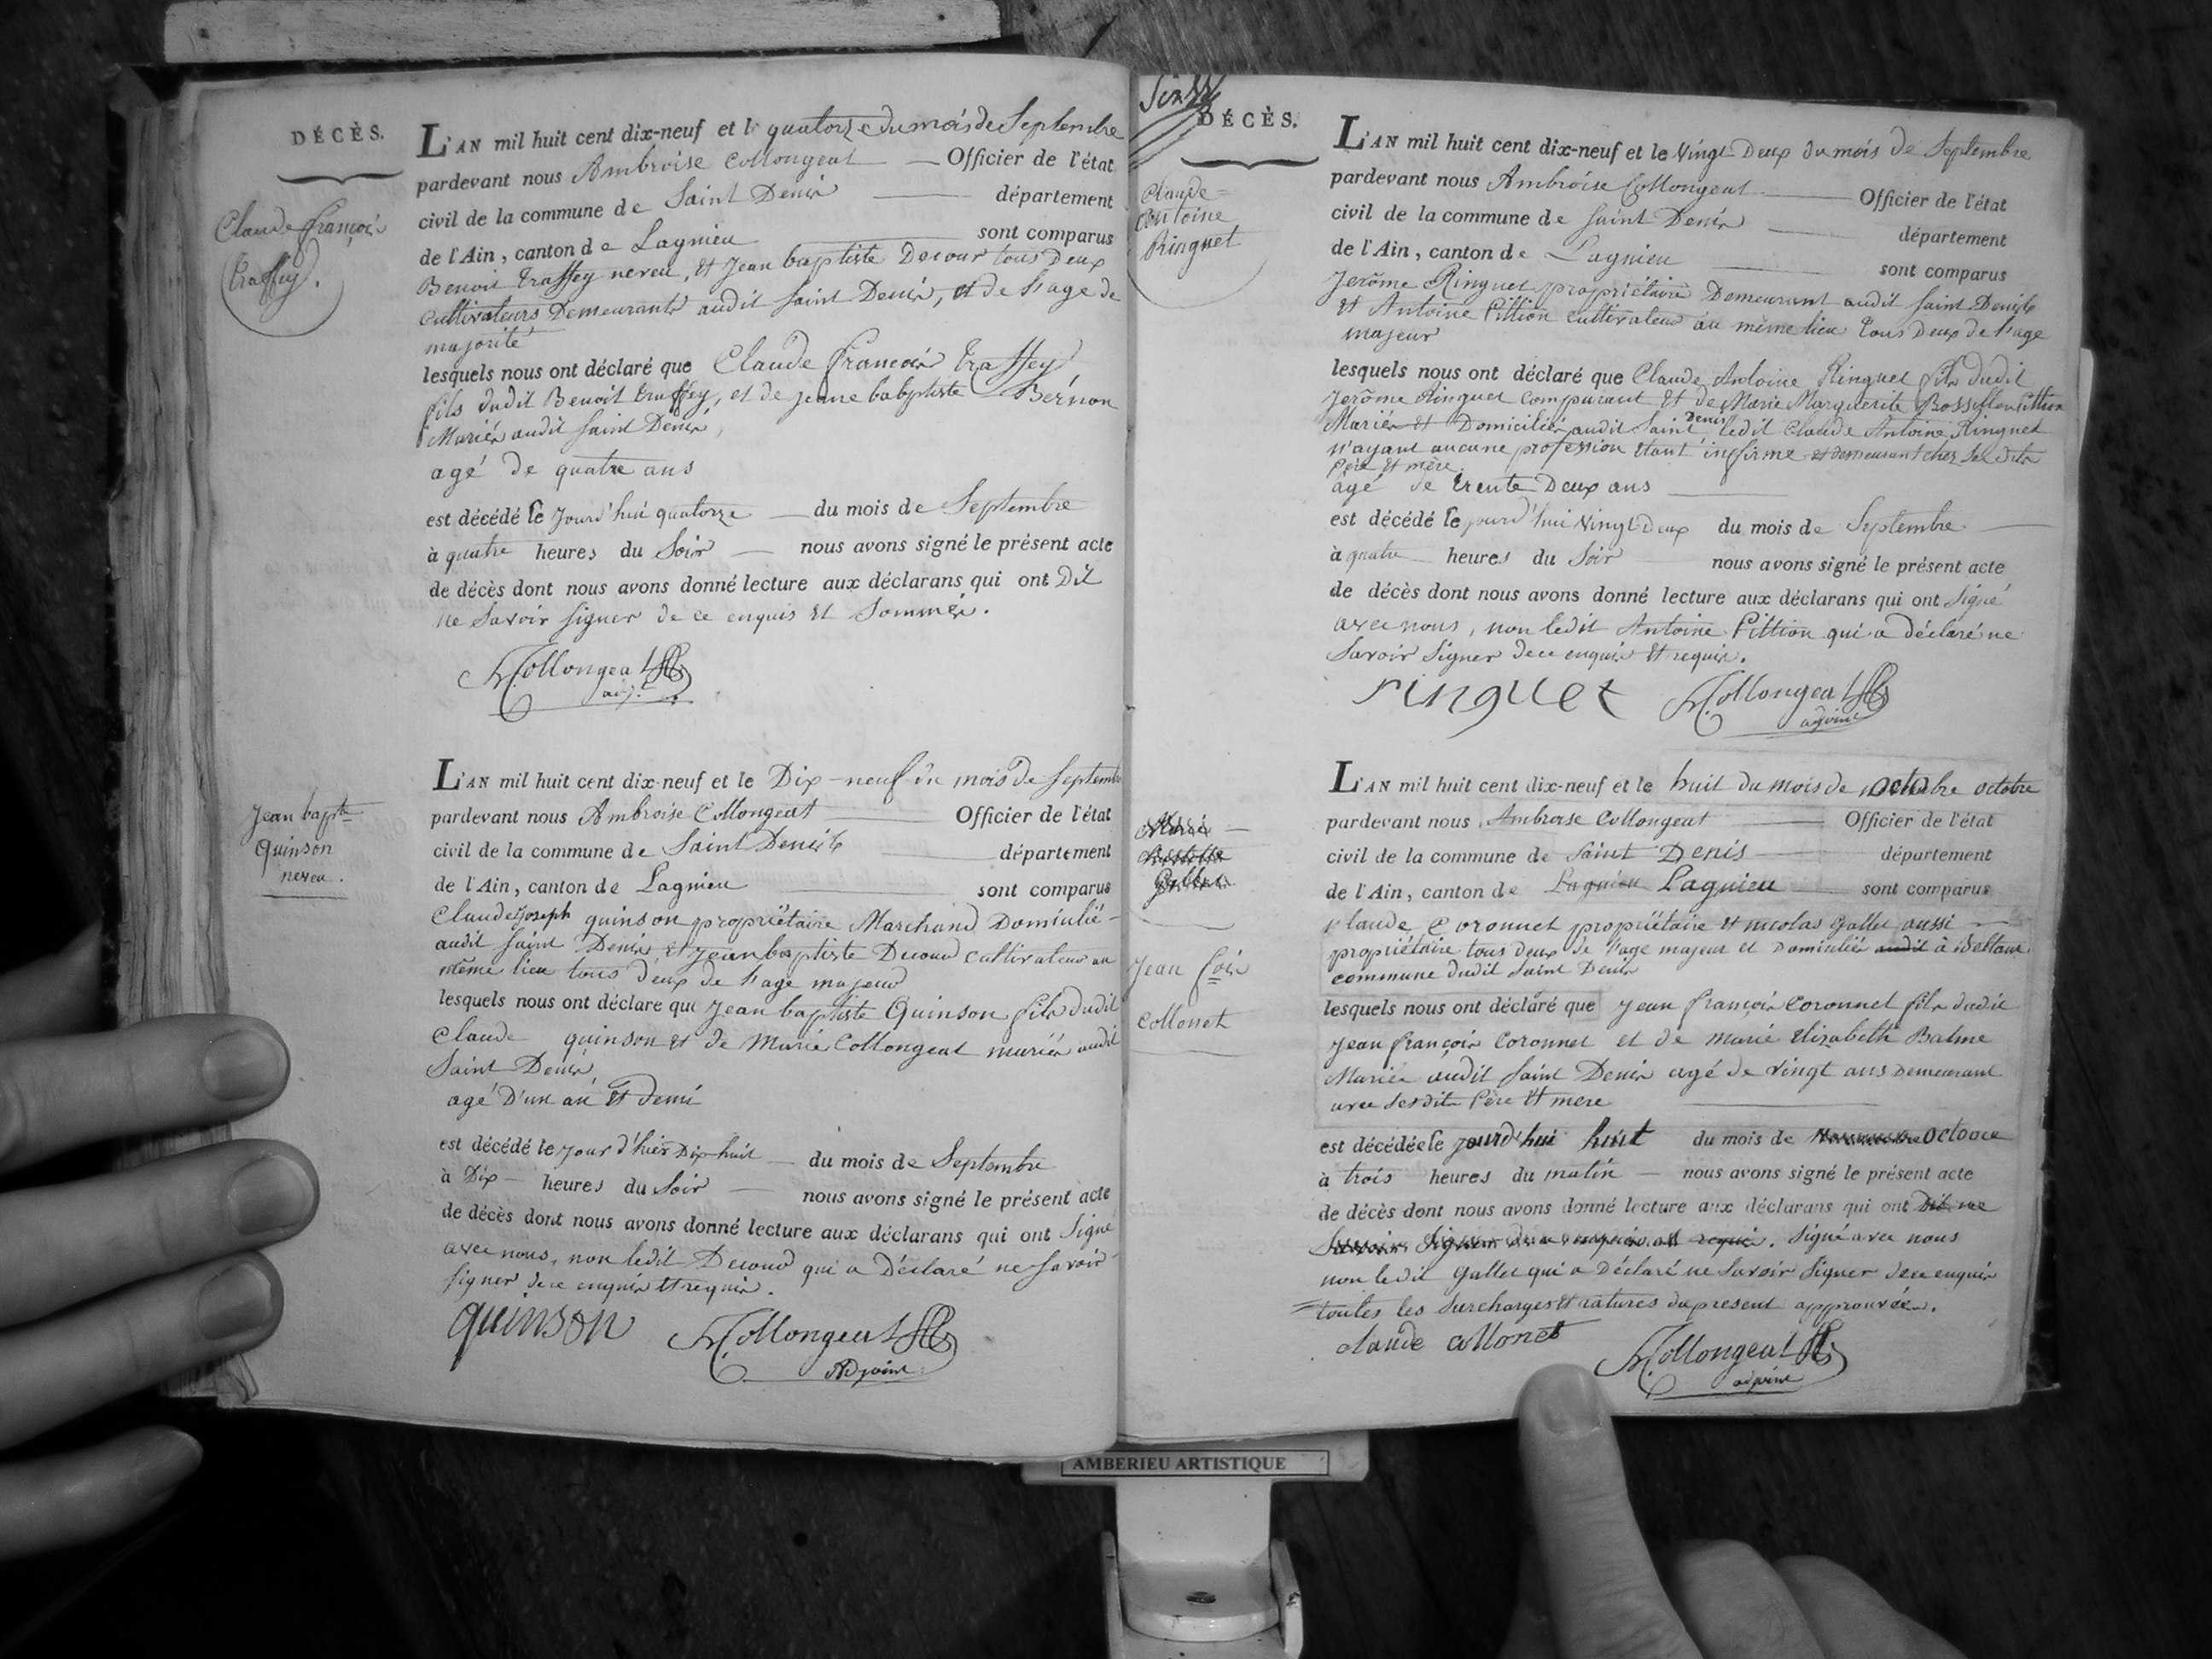 DÉCÈS.
Claude françois
traffey.
L'AN mil huit cent dix-neuf et le quatorze du mois de Septembre
pardevant nous Ambroise Collongeat — Officier de l'état
civil de la commune de Saint Denis — département
de l'Ain, canton de Lagnieu — sont comparus
Benoit traffey neveu, et Jean baptiste Decour tous Deux
Cultivateurs Demeurants audit Saint Denis, et de l'age de
majorité
lesquels nous ont déclaré que Claude françois traffey
fils dudit Benoit traffey, et de jeane babptiste Bernon
Mariés audit Saint Denis,
agé de quatre ans
est décédé le jourd'hui quatorze — du mois de Septembre
à quatre heures du Soir — nous avons signé le présent acte
de décès dont nous avons donné lecture aux déclarans qui ont Dit
ne Savoir signer de ce enquis et Sommés.
Collongeat
adj.t
Jean bapte
Quinson
neveu.
L'AN mil huit cent dix-neuf et le Dix-neuf du mois de Septembre
pardevant nous Ambroise Collongeat — Officier de l'état
civil de la commune de Saint Denis — département
de l'Ain, canton de Lagnieu — sont comparus
Claude Joseph quinson propriétaire Marchand Domicilié
audit Saint Denis et Jean baptiste Decour cultivateur au
même lieu tous deux de l'age majeur
lesquels nous ont déclaré que Jean baptiste Quinson fils dudit
Claude quinson et de Marie Collongeat mariés audit
Saint Denis
agé D'un an et demi
est décédé le jour d'hier Dix-huit — du mois de Septembre
à Dix — heures du Soir — nous avons signé le présent acte
de décès dont nous avons donné lecture aux déclarans qui ont Signé
avec nous, non ledit Decour qui a Déclaré ne Savoir
signer de ce enquis et requis.
quinson Collongeat
Adjoint
DÉCÈS.
Claude
Antoine
Ringuet
L'AN mil huit cent dix-neuf et le Vingt Deux du mois de Septembre
pardevant nous Ambroise Collongeat — Officier de l'état
civil de la commune de Saint Denis — département
de l'Ain, canton de Lagnieu — sont comparus
Jerôme Ringuet propriétaire Demeurant audit Saint Denis
et Antoine Pittion cultivateur au même lieu tous Deux de l'age
majeur
lesquels nous ont déclaré que Claude Antoine Ringuet fils dudit
Jerôme Ringuet comparant et de Marie Marguerite Pittion
Mariés et Domiciliés audit Saint Denis ledit Claude Antoine Ringuet
n'ayant aucune profession étant infirme et demeurant chez Ses dits
Père et mère
agé de trente Deux ans
est décédé le jourd'hui Vingt Deux du mois de Septembre —
à quatre heures du Soir nous avons signé le présent acte
de décès dont nous avons donné lecture aux déclarans qui ont Signé
avec nous, non ledit Antoine Pittion qui a déclaré ne
Savoir Signer de ce enquis et requis.
ringuet Collongeat
adjoint
Jean fois
Collonet
L'AN mil huit cent dix-neuf et le huit du mois de octobre octobre
pardevant nous Ambroise Collongeat — Officier de l'état
civil de la commune de Saint Denis — département
de l'Ain, canton de Lagnieu Lagnieu — sont comparus
Claude Coronnet propriétaire et nicolas Gallet aussi
propriétaire tous deux de l'age majeur et Domiciliés audit à
commune dudit Saint Denis
lesquels nous ont déclaré que Jean françois Coronnet fils dudit
Jean françois Coronnet et de marie Elizabeth Balme
Mariés audit Saint Denis agé de vingt ans Demeurant
avec Sesdits Père et mere
est décédée le jourd'hui huit du mois de Octobre
à trois heures du matin — nous avons signé le présent acte
de décès dont nous avons donné lecture aux déclarans qui ont Dit ne
Savoir Signer de ce enquis et requis. Signé avec nous
non ledit Gallet qui a Déclaré ne Savoir Signer de ce enquis
= toutes les Surcharges et ratures du present approuvées.
claude collonet Collongeat
adjoint
AMBERIEU ARTISTIQUE